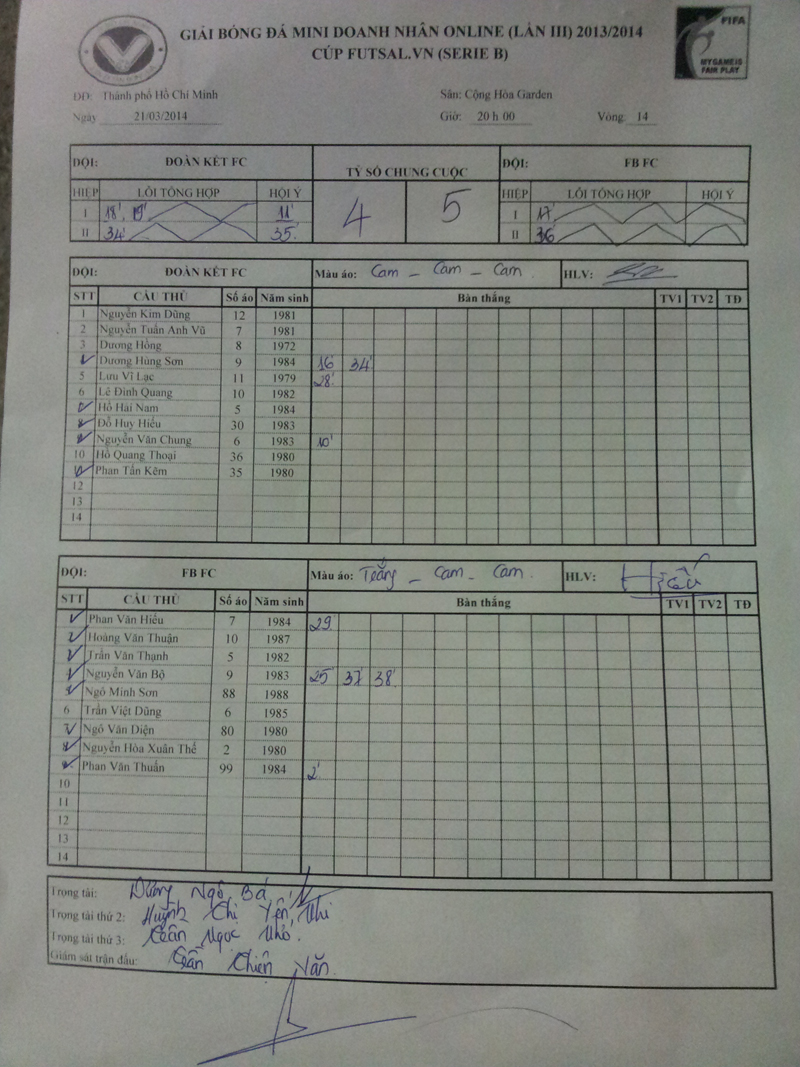 GIẢI BÓNG ĐÁ MINI DOANH NHÂN ONLINE (LẦN III) 2013/2014
CÚP FUTSAL.VN (SERIE B)
FIFA
MY GAME IS
FAIR PLAY
DD: Thành phố Hồ Chí Minh Sân: Cộng Hòa Garden
Ngày 21/03/2014 Giờ: 20 h 00 Vòng: 14
ĐỘI: ĐOÀN KẾT FC TỶ SỐ CHUNG CUỘC ĐỘI: FB FC
HIỆP LỖI TỔNG HỢP HỘI Ý 4 5 HIỆP LỖI TỔNG HỢP HỘI Ý
I 18', 19' 11' I 17'
II 34' 35' II 36
ĐỘI: ĐOÀN KẾT FC Màu áo: Cam - Cam - Cam HLV:
STT CẦU THỦ Số áo Năm sinh Bàn thắng TV1 TV2 TĐ
1 Nguyễn Kim Dũng 12 1981
2 Nguyễn Tuấn Anh Vũ 7 1981
3 Dương Hồng 8 1972
Dương Hùng Sơn 9 1984 16' 34'
5 Lưu Vĩ Lạc 11 1979 28'
6 Lê Đình Quang 10 1982
Hồ Hải Nam 5 1984
Đỗ Huy Hiếu 30 1983
Nguyễn Văn Chung 6 1983 10'
10 Hồ Quang Thoại 36 1980
Phan Tấn Kêm 35 1980
12
13
14
ĐỘI: FB FC Màu áo: Trắng - Cam - Cam HLV: Hiếu
STT CẦU THỦ Số áo Năm sinh Bàn thắng TV1 TV2 TĐ
Phan Văn Hiếu 7 1984 29'
Hoàng Văn Thuận 10 1987
Trần Văn Thạnh 5 1982
Nguyễn Văn Bộ 9 1983 25' 37' 38'
Ngô Minh Sơn 88 1988
6 Trần Việt Dũng 6 1985
Ngô Văn Diện 80 1980
Nguyễn Hòa Xuân Thế 2 1980
Phan Văn Thuấn 99 1984 2'
10
11
12
13
14
Trọng tài: Dương Ngô Bá
Trọng tài thứ 2: Huỳnh Chị Yến Nhi
Trọng tài thứ 3: Trần Ngọc Nhỏ.
Giám sát trận đấu: Trần Chiến Văn